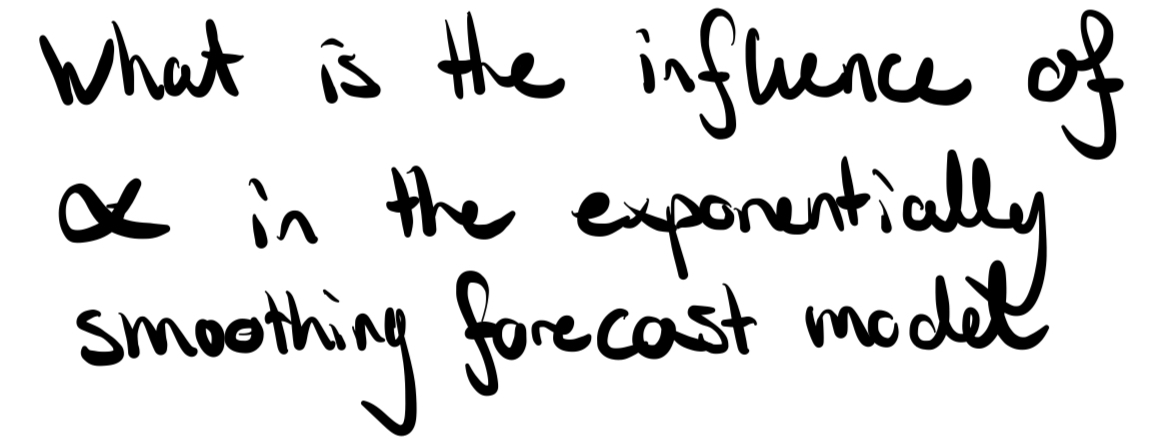 What is the influence of
α in the exponentially
smoothing forecast model